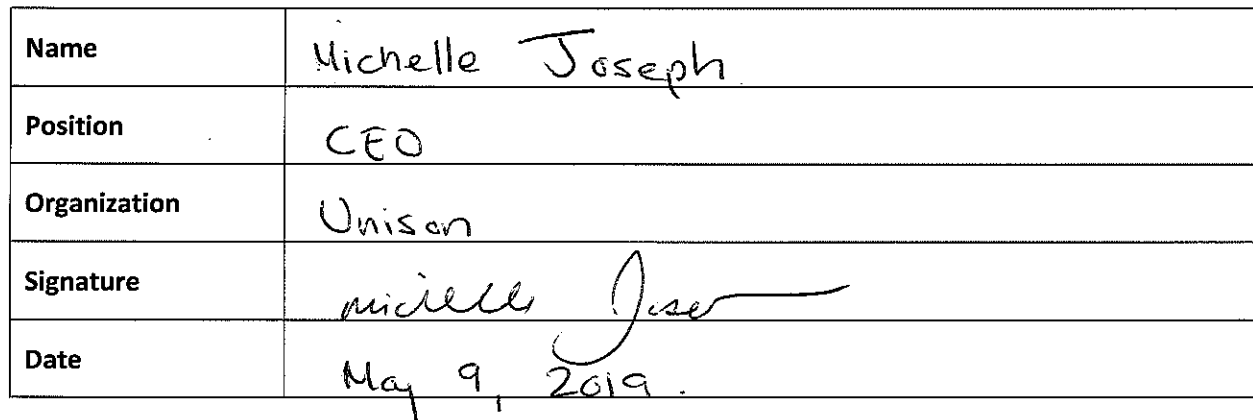 Name Michelle Joseph
Position CEO
Organization Unison
Signature Michelle Jose
Date May 9, 2019.